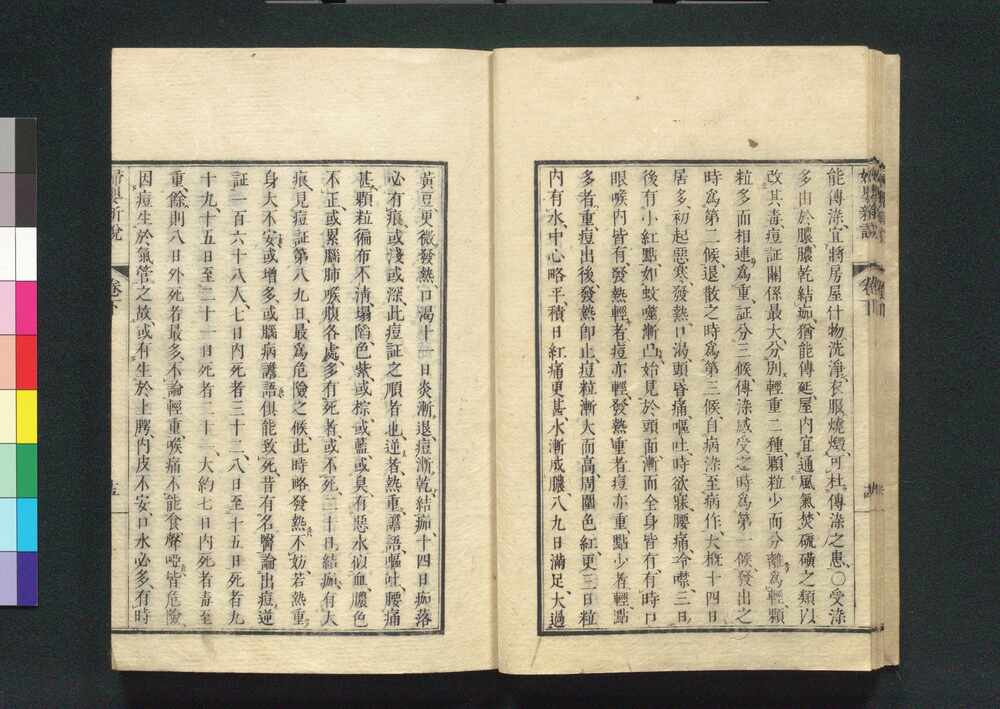 能傳染、宜將房屋什物洗淨、衣服燒燬、可杜傳染之患、〇受染
多由於膿、膿乾結痂、猶能傳延、屋内宜通風氣、焚硫磺之類以
改其毒、痘証關係最大、分別輕重二種、顆粒少而分離爲輕、顆
粒多而相連爲重、証分三候、傳染感受之時爲第一候、發出之
時爲第二候、退散之時爲第三候、自病染至病作、大概十四日
居多、初起惡寒、發熱、口渴、頭昏痛、嘔吐、時欲寐、腰痛、冷噤、三日
後有小紅點、如蚊噬、漸凸、始見於頭面、漸而全身皆有、有時口
眼喉内皆有、發熱輕者、痘亦輕、發熱重者、痘亦重、點少者輕、點
多者重、痘出後、發熱即止、痘粒漸大而高、周圍色紅、更三日粒
内有水、中心略平、積日紅痛更甚、水漸成膿、八九日滿足、大過
黃豆、更微發熱、口渴、十一日炎漸退、痘漸乾、結痂、十四日痂落
必有痕、或淺或深、此痘証之順者也、逆者、熱重、譫語、嘔吐、腰痛
甚、顆粒徧布不清、塌陷、色紫、或棕、或藍、或臭、有惡水似血、膿色
不正、或累腦肺喉腹各處、多有死者、或不死、二十日結痂、有大
痕、見痘証第八九日、最爲危險之候、此時略發熱不妨、若熱重、
身大不安、或增多、或腦病譫語、俱能致死、昔有名醫論出痘逆
証一百六十八人、七日内死者三十二、八日至十五日死者九
十九、十五日至二十一日死者二十二、大約七日内死者毒至
重、餘則八日外死者最多、不論輕重、喉痛不能食、聲啞、皆危險、
因痘生於氣管之故、或有生於上腭内皮不安、口水必多、有時
婦嬰新說
卷下